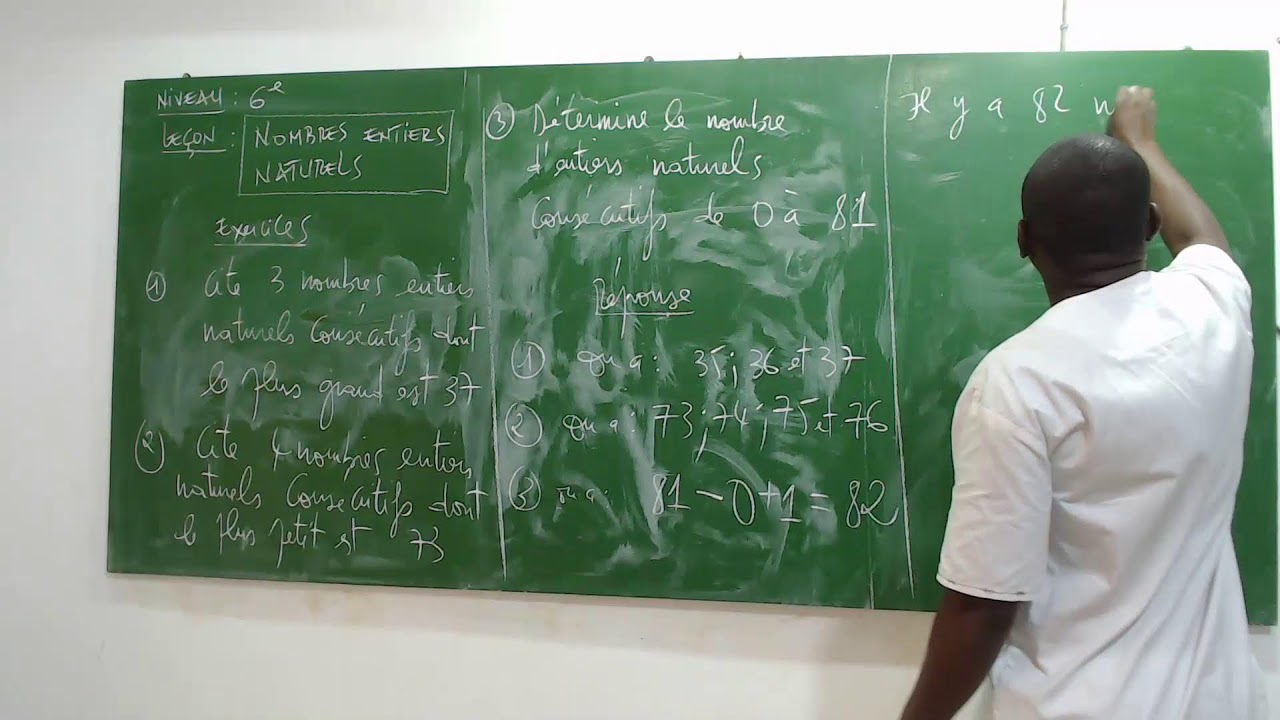 NIVEAU : 6e
LEÇON : NOMBRES ENTIERS
NATURELS
Exercices
① Cite 3 nombres entiers
naturels consécutifs dont
le plus grand est 37
② Cite 4 nombres entiers
naturels consécutifs dont
le plus petit est 73
③ Détermine le nombre
d'entiers naturels
consécutifs de 0 à 81
Réponse
① on a : 35 ; 36 et 37
② on a : 73 ; 74 ; 75 et 76
③ on a : 81 - 0 + 1 = 82
Il y a 82 n